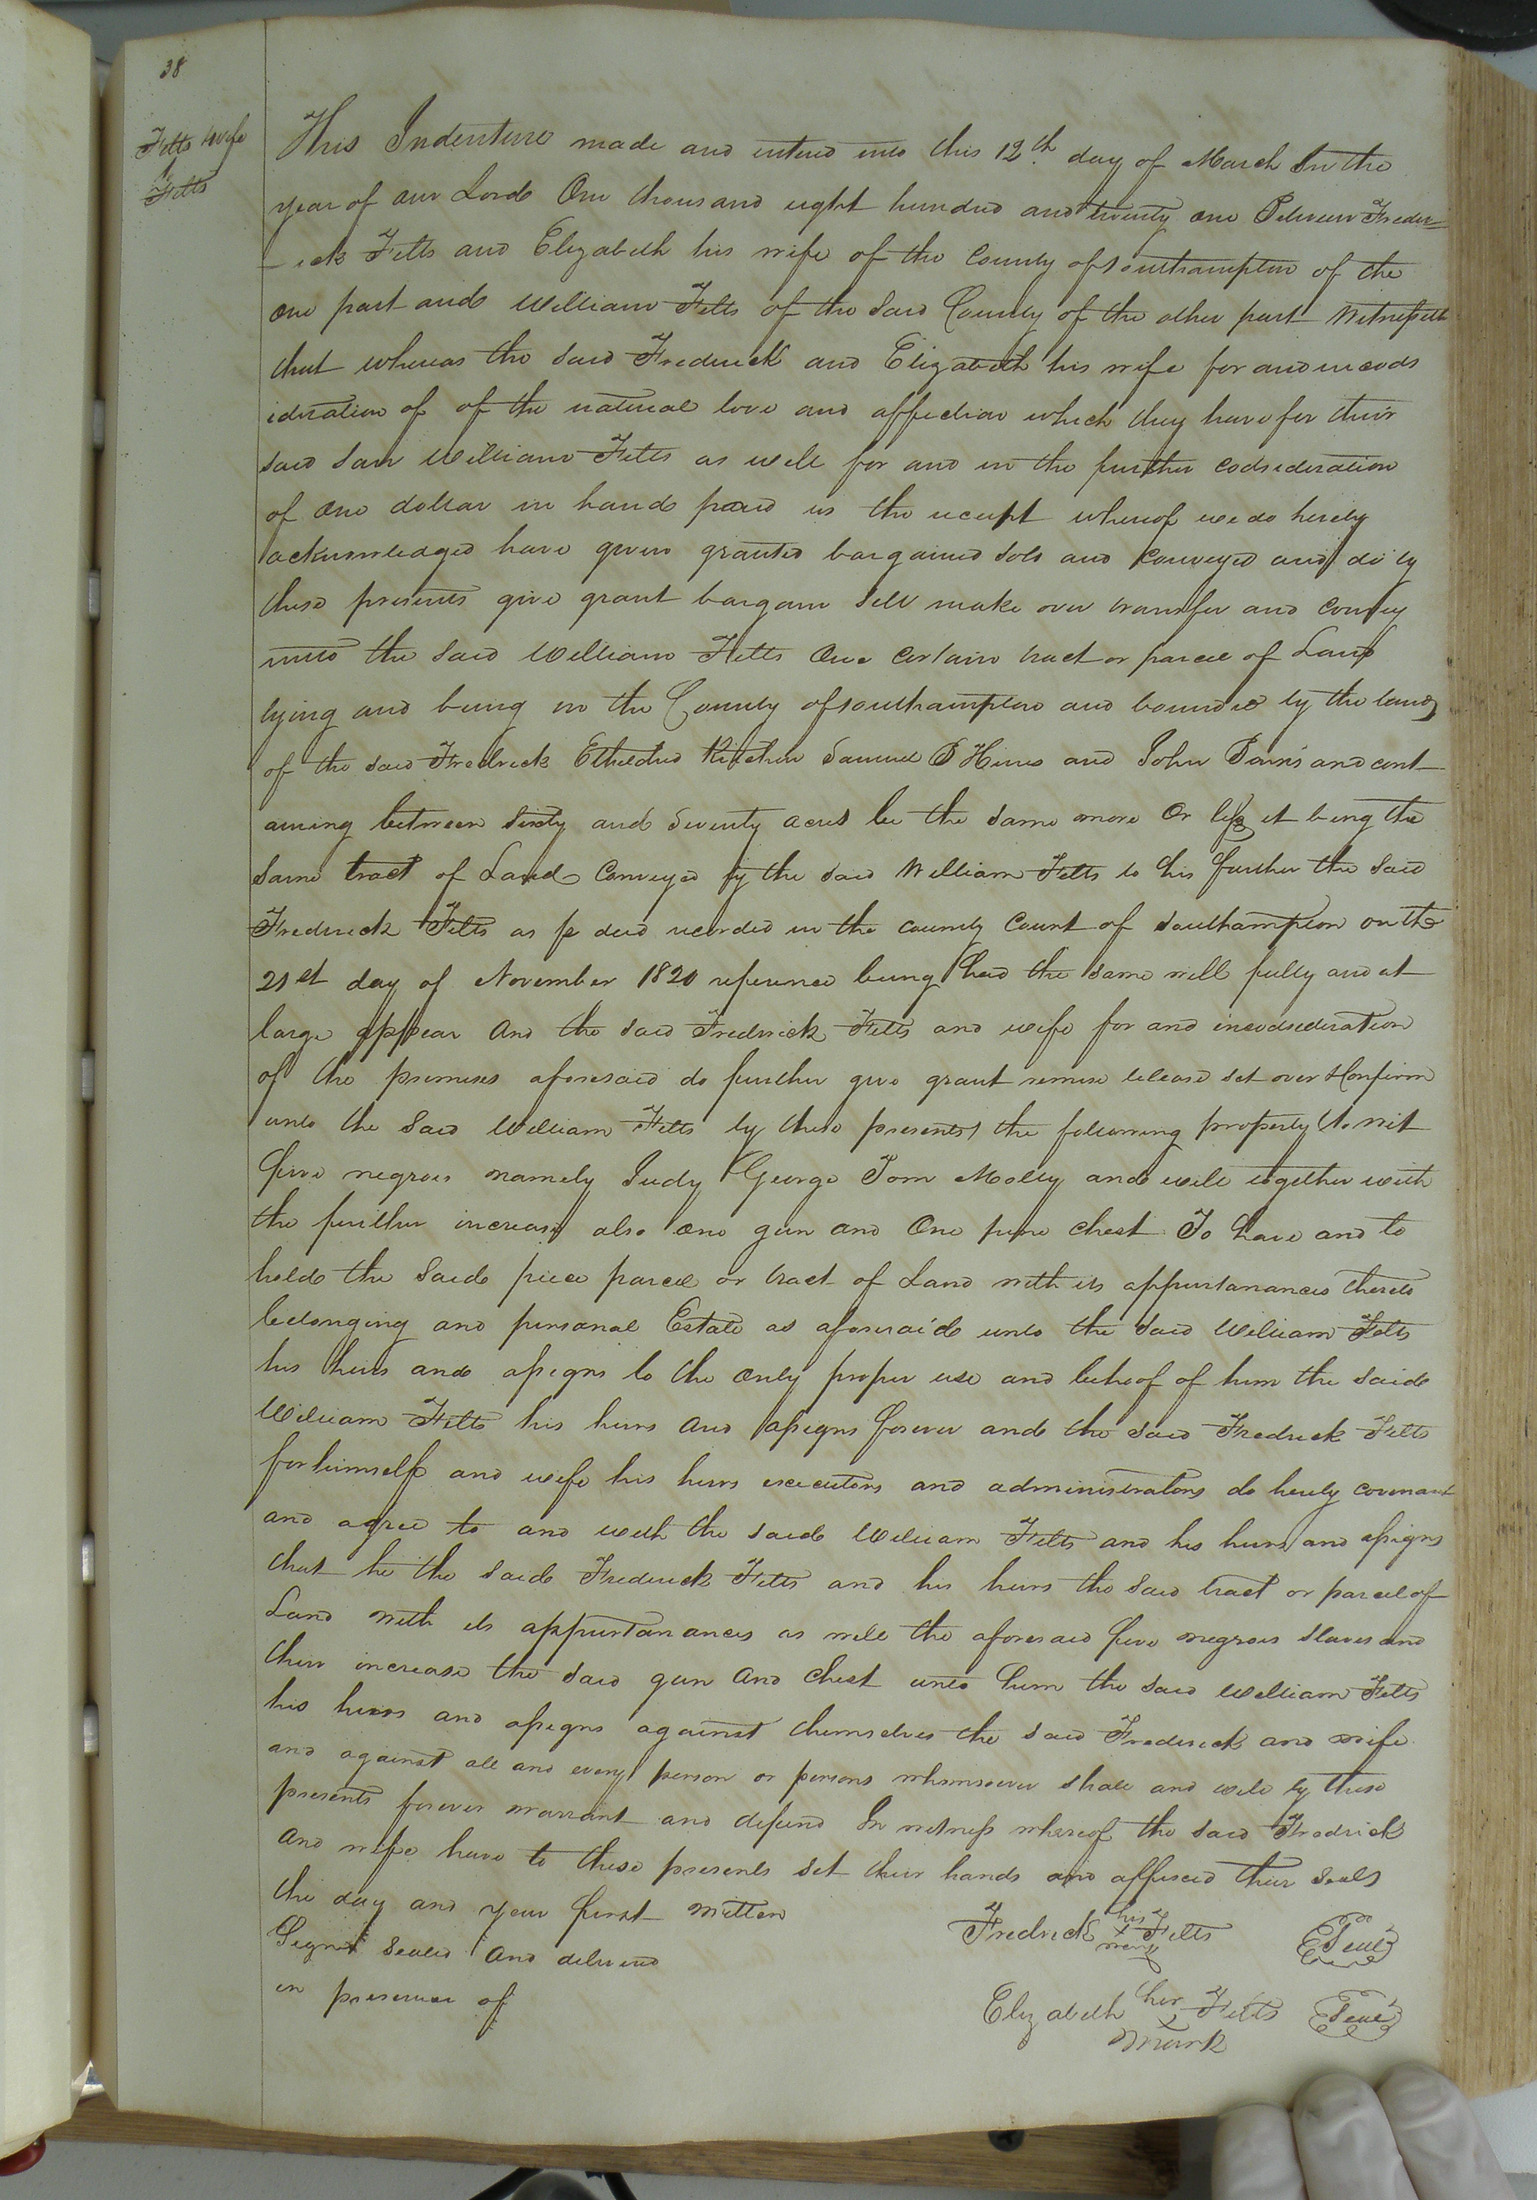 38
Felts & Wife
Felts
This Indenture made and entred into this 12th day of March In the
year of our Lord One thousand eight hundred and twenty one Between Freder=
=ick Felts and Elizabeth his wife of the County of Southampton of the
one part and William Felts of the said County of the other part Witnesseth
that whereas the said Frederick and Elizabeth his wife for and in cods
ideration of of the natural love and affection which they have for their
said son William Felts as well for and in the further codsideration
of one dollar in hand paid us the receipt whereof we do hereby
acknowledged have given granted bargained sold and conveyed and do by
these presents give grant bargain sell make over transfer and convey
unto the said William Felts One certain tract or parcel of Land
lying and being in the County of Southampton and bounded by the lands
of the said Fredrick Etheldred Kitchen Samuel B Hines and John Davis and cont
aining between sixty and seventy acres be the same more or less it being the
same tract of Land Conveyed by the said William Felts to his further the said
Frederick Felts as pr deed recorded in the county Court of Southampton on the
21st day of November 1820 reference being had the same will fully and at
large appear And the said Fredrick Felts and wife for and in codsideration
of the premises aforesaid do further give grant remise release set over & Confirm
unto the said William Felts by these presents the following property to wit
five negroes namely Judy George Tom Molly and will together with
the further increase also one gun and One pine chest To have and to
hold the said piece parcel or tract of Land with its appurtanances thereto
belonging and personal Estate as aforesaid unto the said William Felts
his heirs and assigns to the only proper use and behoof of him the said
William Felts his heirs and assigns forever and the said Fredrick Felts
for himself and wife his heirs executors and administrators do hereby covenant
and agree to and with the said William Felts and his heirs and assigns
that he the said Frederick Felts and his heirs the said tract or parcel of
Land with its appurtanances as well the aforesaid five negroes slaves and
their increase the said gun and chest unto him the said William Felts
his heirs and assigns against themselves the said Frederick and wife
and against all and every person or persons whomsoever shall and will by these
presents forever warrant and defend In witness whereof the said Fredrick
and wife have to these presents set their hands and affixed their seals
the day and year first written
Signed sealed and delivered
in presence of
Fredrick his x mark Felts Seal
Elizabeth her x mark Felts Seal